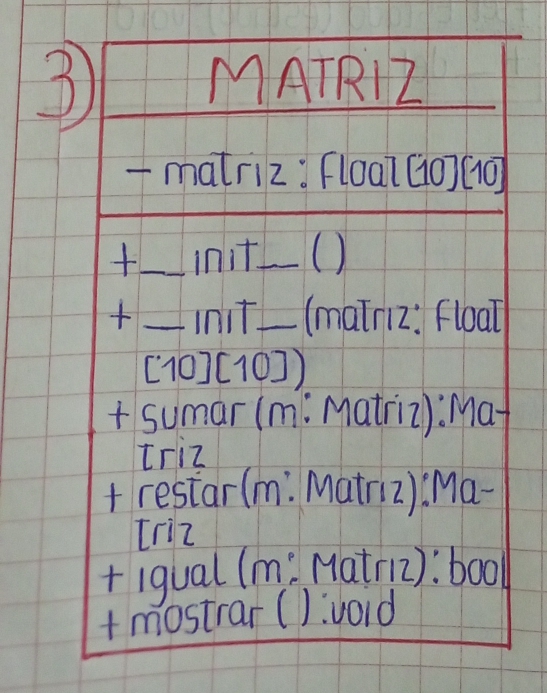 3) MATRIZ
- matriz: float[10][10]
+ __init__()
+ __init__(matriz: float
[10][10])
+ sumar(m: Matriz): Ma-
triz
+ restar(m: Matriz): Ma-
triz
+ igual(m: Matriz): bool
+ mostrar(): void